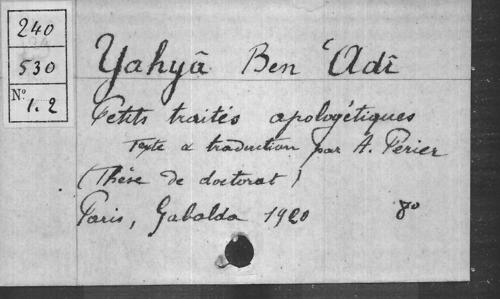 240
530
N° 1.2
Yahyâ Ben ʿAdî
Petits traités apologétiques
Texte & traduction par A. Périer
(Thèse de doctorat)
Paris, Gabalda 1920 8o